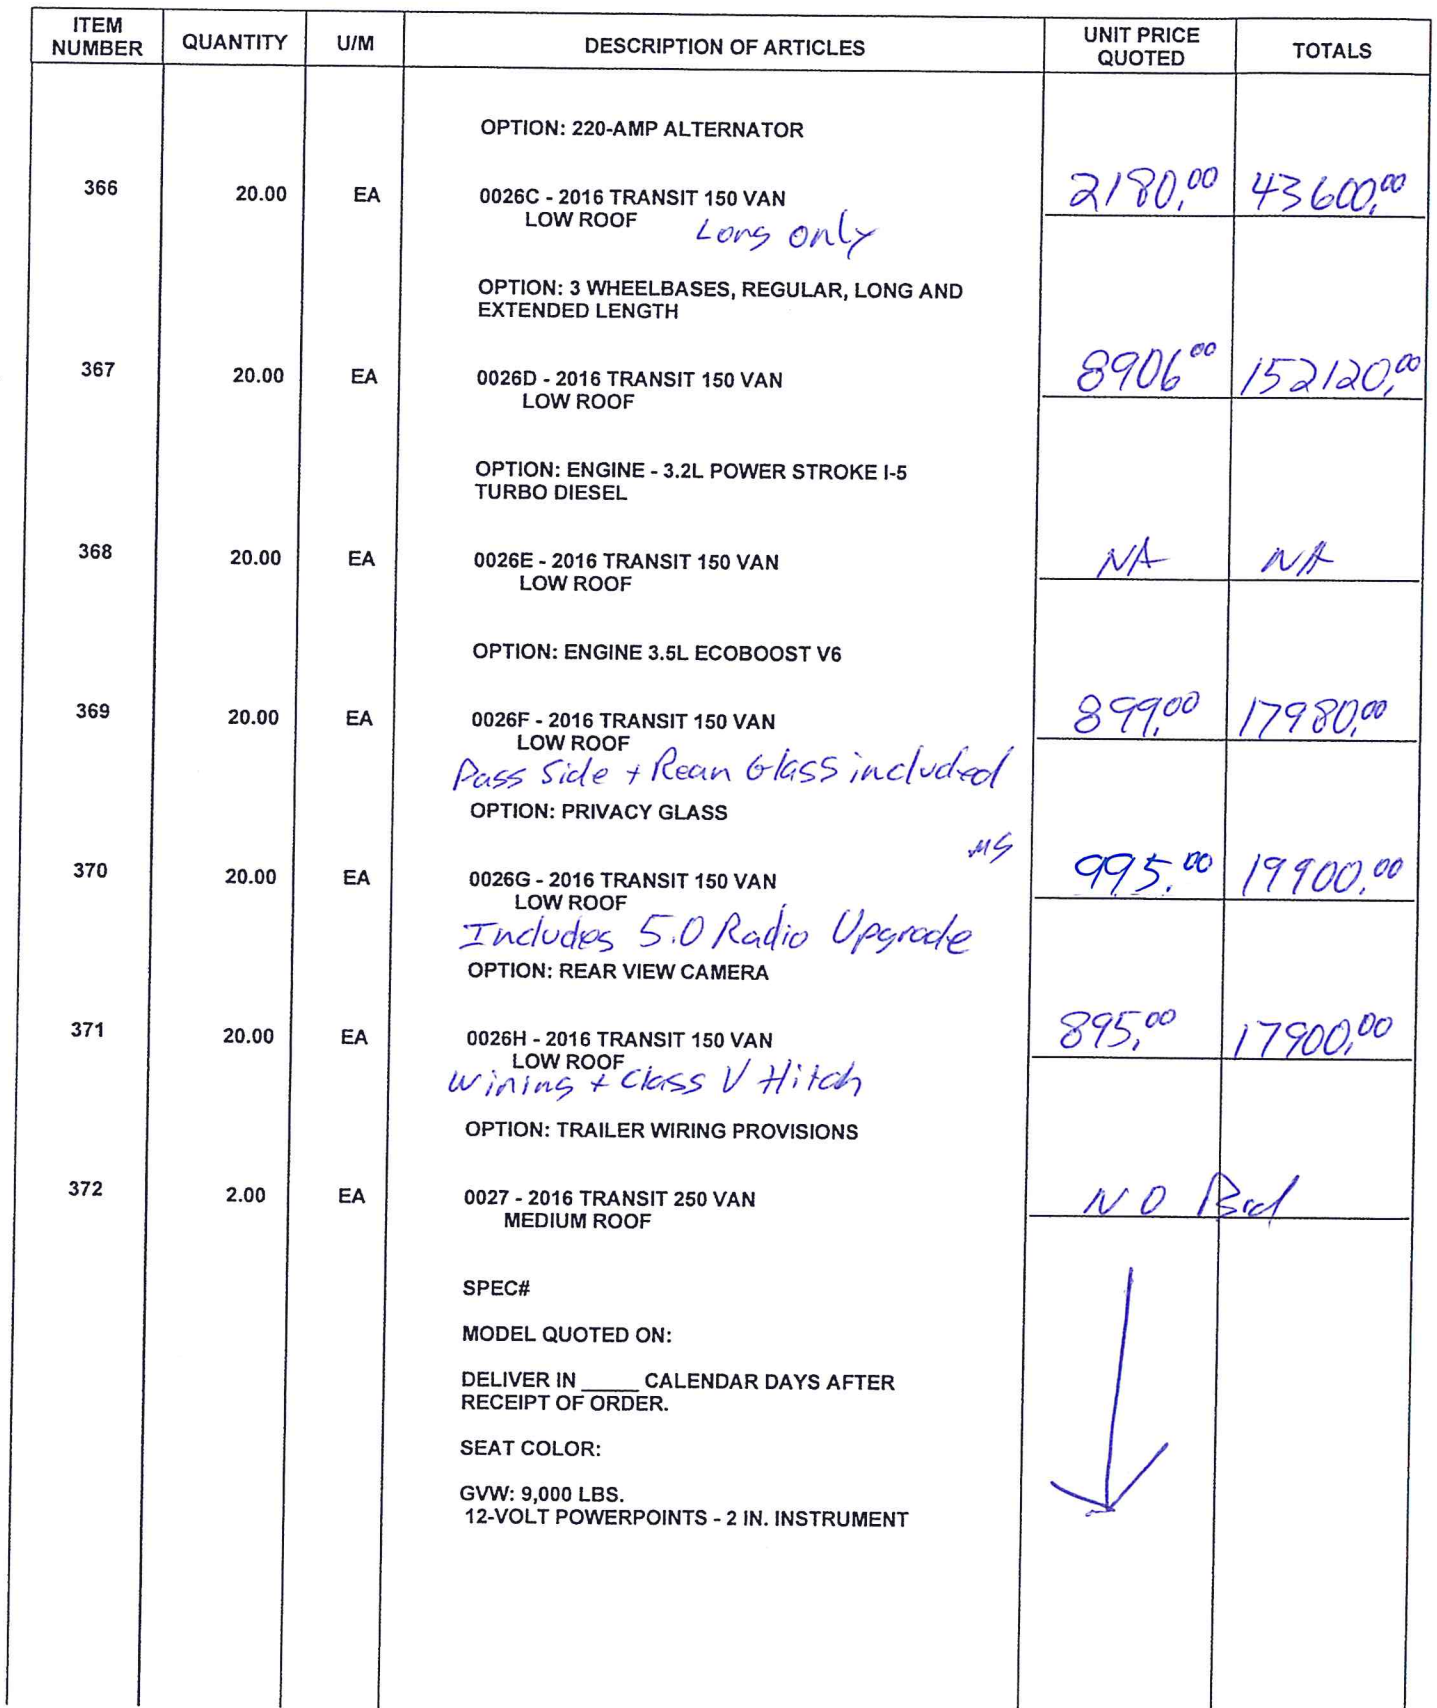 ITEM NUMBER QUANTITY U/M DESCRIPTION OF ARTICLES UNIT PRICE QUOTED TOTALS
OPTION: 220-AMP ALTERNATOR
366 20.00 EA 0026C - 2016 TRANSIT 150 VAN 2180,00 43600,00
LOW ROOF Long only
OPTION: 3 WHEELBASES, REGULAR, LONG AND
EXTENDED LENGTH
367 20.00 EA 0026D - 2016 TRANSIT 150 VAN 8906 00 152120,00
LOW ROOF
OPTION: ENGINE - 3.2L POWER STROKE I-5
TURBO DIESEL
368 20.00 EA 0026E - 2016 TRANSIT 150 VAN NA NA
LOW ROOF
OPTION: ENGINE 3.5L ECOBOOST V6
369 20.00 EA 0026F - 2016 TRANSIT 150 VAN 899,00 17980,00
LOW ROOF
Pass Side + Rear Glass included
OPTION: PRIVACY GLASS
370 20.00 EA 0026G - 2016 TRANSIT 150 VAN 995.00 19900.00
LOW ROOF
Includes 5.0 Radio Upgrade
OPTION: REAR VIEW CAMERA
371 20.00 EA 0026H - 2016 TRANSIT 150 VAN 895,00 17900,00
LOW ROOF
Wiring + Class V Hitch
OPTION: TRAILER WIRING PROVISIONS
372 2.00 EA 0027 - 2016 TRANSIT 250 VAN NO Bid
MEDIUM ROOF
SPEC#
MODEL QUOTED ON:
DELIVER IN _____ CALENDAR DAYS AFTER
RECEIPT OF ORDER.
SEAT COLOR:
GVW: 9,000 LBS.
12-VOLT POWERPOINTS - 2 IN. INSTRUMENT